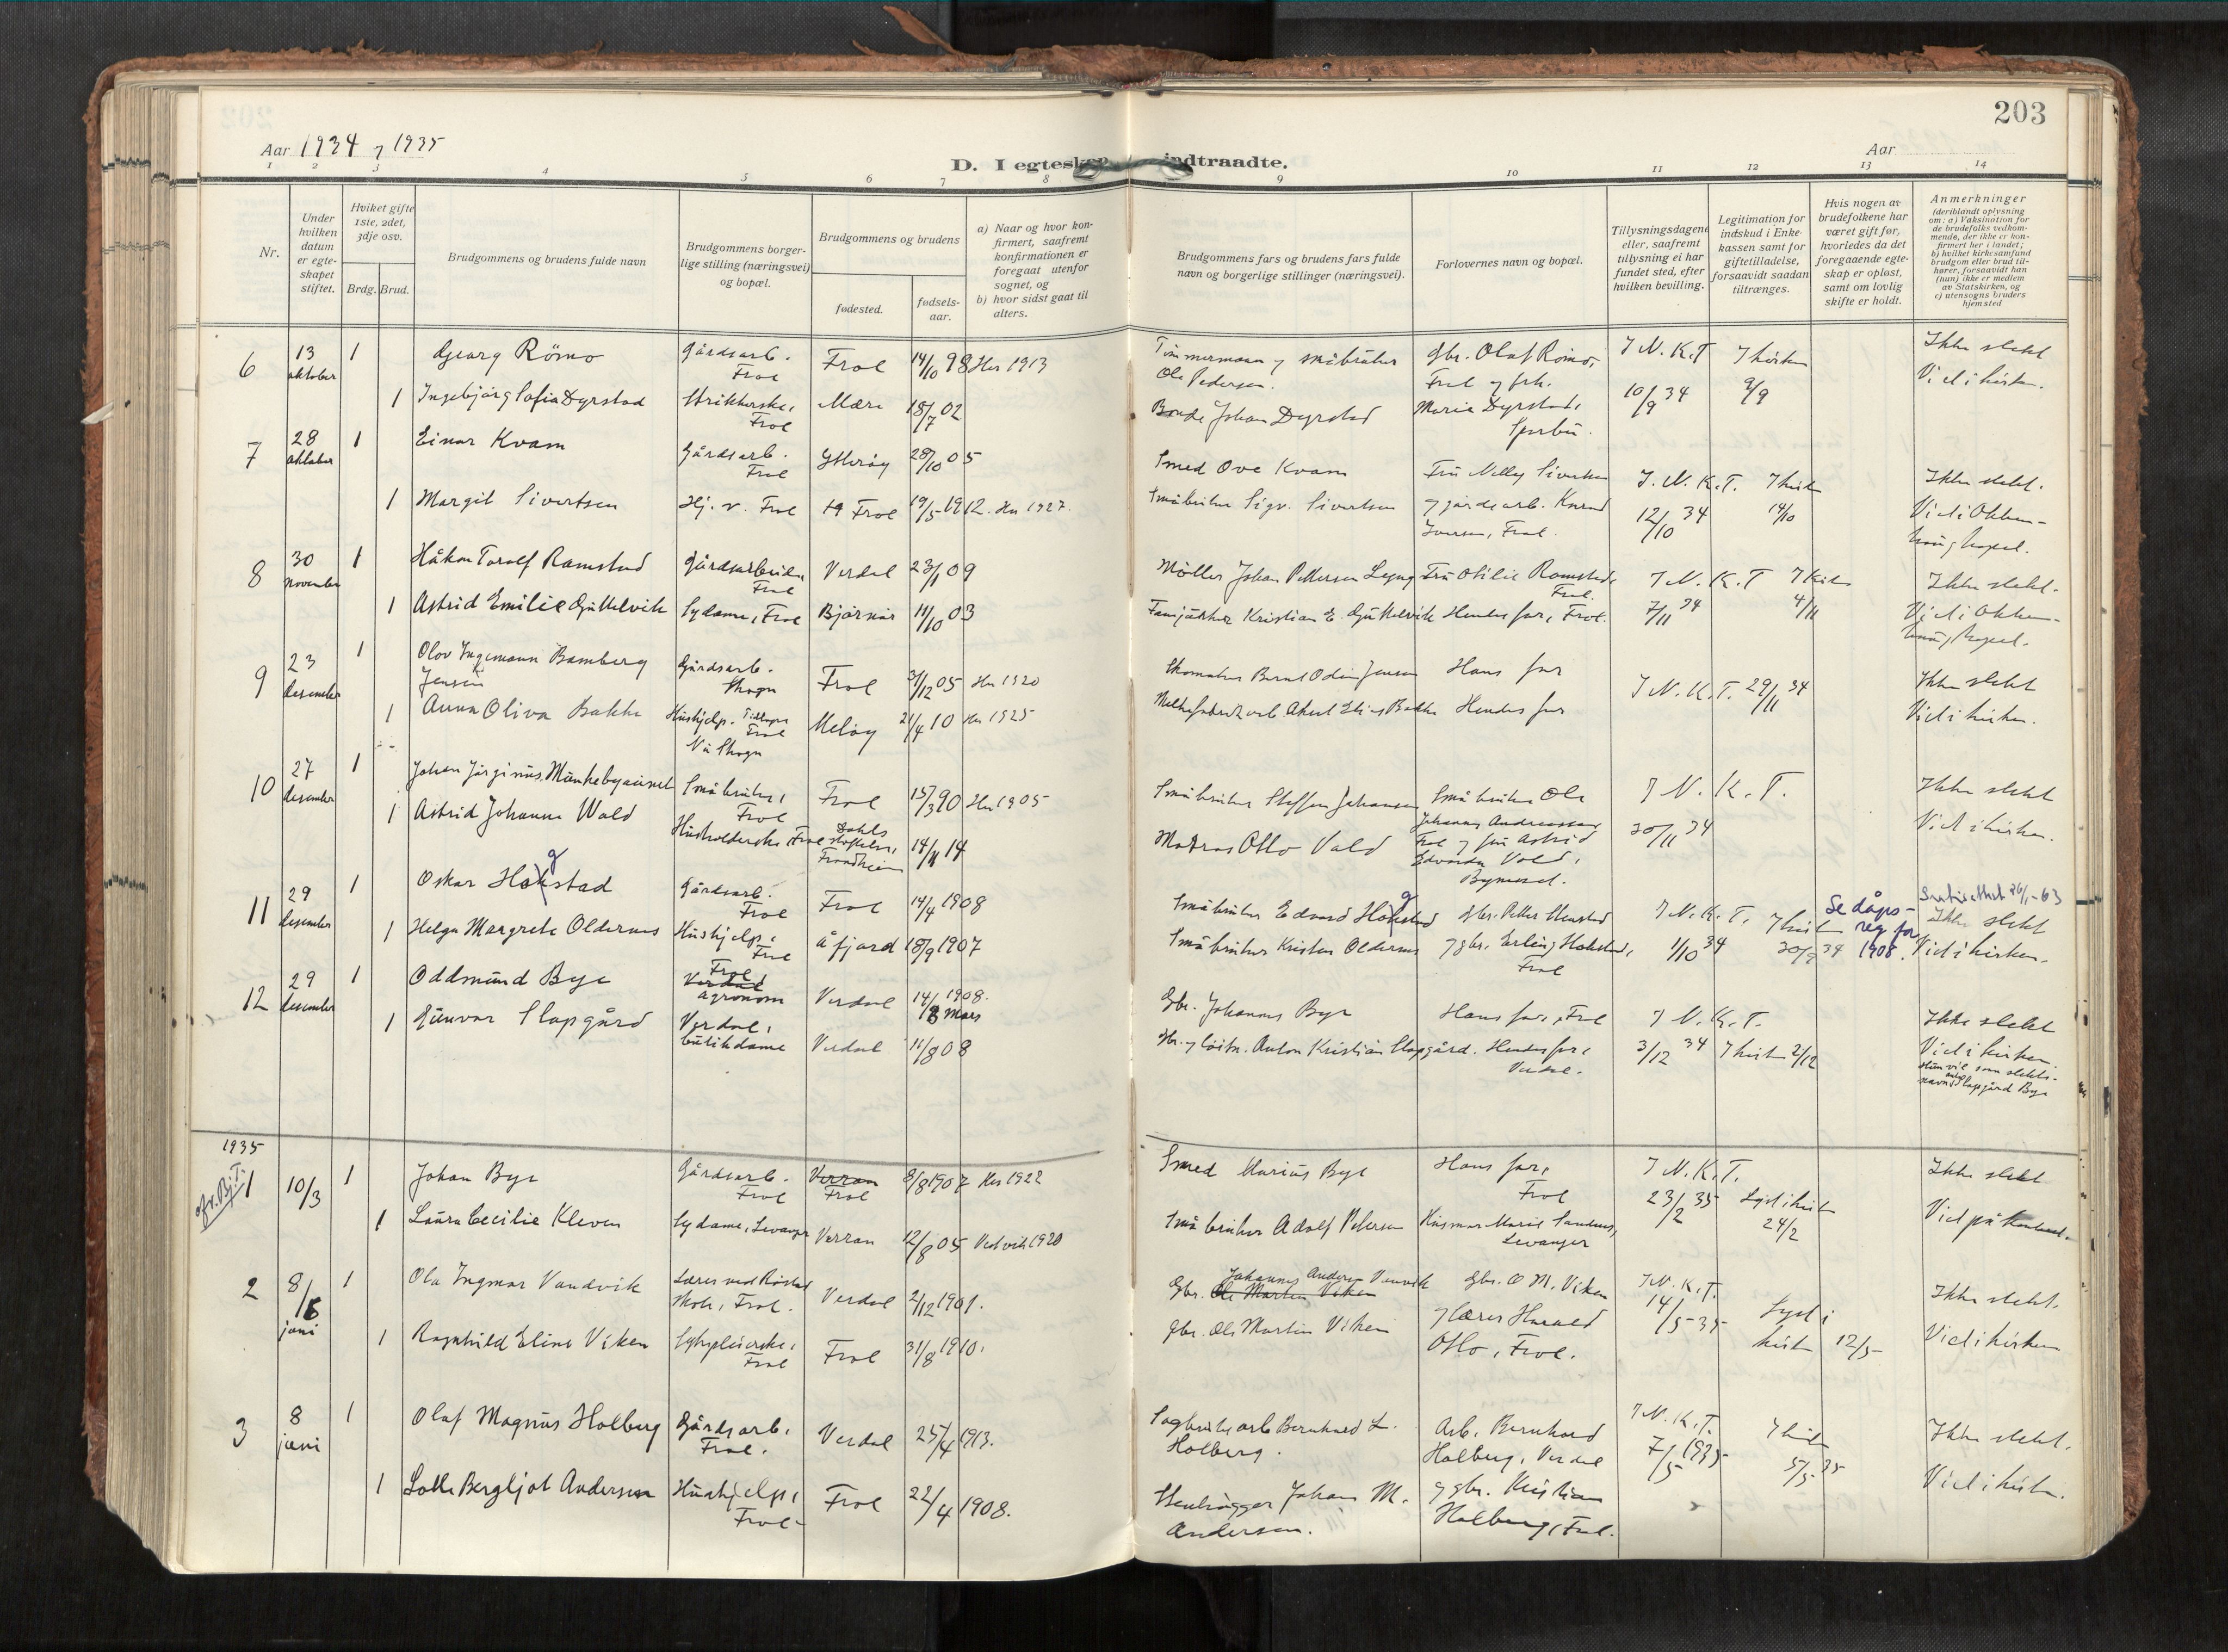 203
Aar 1934 og 1935
Aar
D. I egteskap indtraadte.
1 2 3 4 5 6 7 8 9 10 11 12 13 14
Nr.
Under hvilken datum er egteskapet stiftet.
Hviket gifte 1ste, 2det, 3dje osv.
Brdg. Brud.
Brudgommens og brudens fulde navn
Brudgommens borgerlige stilling (næringsvei) og bopæl.
Brudgommens og brudens
fødested.
fødselsaar.
a) Naar og hvor konfirmert, saafremt konfirmationen er foregaat utenfor sognet, og
b) hvor sidst gaat til alters.
Brudgommens fars og brudens fars fulde navn og borgerlige stillinger (næringsvei).
Forlovernes navn og bopæl.
Tillysningsdagene eller, saafremt tillysning ei har fundet sted, efter hvilken bevilling.
Legitimation for indskud i Enkekassen samt for giftetilladelse, forsaavidt saadan tiltrænges.
Hvis nogen av brudefolkene har været gift før, hvorledes da det foregaaende egteskap er opløst, samt om lovlig skifte er holdt.
Anmerkninger
(deriblandt oplysning om: a) Vaksination for de brudefolks vedkommende, der ikke er konfirmert her i landet; b) hvilket kirkesamfund brudgom eller brud tilhører, forsaavidt han (hun) ikke er medlem av Statskirken, og c) utensogns bruders hjemsted
6 13 oktober 1 Georg Römo Gårdsarb. Frol Frol 14/10 98 Her 1913
Timmermann og småbruker Ole Pedersen. Gbr. Olaf Römo, Frol og frk. Marie Dyrstad, Sparbu. I N. K. T 10/9 34 I kirken 9/9 Ikke slekt Viet i kirken.
1 Ingebjørg Sofia Dyrstad Strikkerske, Frol Mære 18/7 02
Bonde Johan Dyrstad
7 28 oktober 1 Einar Kvam Gårdsarb. Frol Ytterøy 28/10 05
Smed Ove Kvam Fru Nelly Sivertsen og gårdsarb. Iversen, Frol. I. N. K. T. 12/10 34 I kirken 14/10 Ikke slekt. Viet i Okkenhaug kapel.
1 Margit Sivertsen Hj. v. Frol Frol 19/5 1912. Her 1927.
Småbruker Sigv. Sivertsen
8 30 november 1 Håkon Torolf Ramstad Gårdsarbeider Frol Verdal 23/1 09
Möller Johan Pettersen Fru Otilie Ramstad, Frol. I N. K. T 7/11 34 I kirk 4/11 Ikke slekt. Viet i Okkenhaug kapel.
1 Astrid Emilie Gjuttelvik Sydame, Frol Bjørnør 11/10 03
Kristian E. Gjuttelvik Hendes far, Frol.
9 23 desember 1 Olov Ingemann Bamberg Jensen Gårdsarb. Skogn Frol 31/12 05 Her 1920
Skomaker Bernt Odin Jensen Hans far I N. K. T. 29/11 34 Ikke slekt Viet i kirken.
1 Anna Oliva Bakke Hushjelp. Frol Nu Skogn Meløy 21/4 10 Her 1925
Bakke Hendes far
10 27 desember 1 Johan Jørginus Munkebyaunet Småbruker, Frol Frol 15/3 90 Her 1905
Småbruker Steffen Johansen Småbruker Ole Johannes Andreassen Frol og fru Astrid Vold, Bymarsel. I N. K. T. 30/11 34 Ikke slekt Viet i kirken.
1 Astrid Johanna Wold Husholderske, Frol Dahls stiftelse, Trondheim 14/11 14
Matros Otto Vold
11 29 desember 1 Oskar Hokstad g Gårdsarb. Frol Frol 14/4 1908
Småbruker Edvard Hokstad g Gbr. Petter Hunstad og gbr. Erling Hokstad, Frol I N. K. T. 1/10 34 I kirk 30/9 34 Se dåpsreg for 1908. 26/1-63 Ikke slekt Viet i kirken.
1 Helga Margrete Oldernes Hushjelp, Frol Åfjord 18/9 1907
Småbruker Kristen Oldernes
12 29 desember 1 Oddmund Bye Frol Verdal agronom Verdal 14/3 1908. Mars
Gbr. Johannes Bye Hans far, Frol I N. K. T. 3/12 34 I kirk 2/12 Ikke slekt Viet i kirken Hun vil som slektsnavn Slapgård Bye
1 Gunvor Slapgård Verdal, butikdame Verdal 11/8 08
Gbr. og løitn. Anton Kristian Slapgård. Hendes far, Verdal.
1935
1 10/3 1 Johan Bye Gårdsarb. Frol Verran Frol 8/8 1907 Her 1922
Smed Marius Bye Hans far, Frol I N. K. T. 23/2 35 Lyst i kirk 24/2 Ikke slekt Viet på
1 Laura Cecilie Kleven Sydame, Levanger Verran 12/8 05 1920
Småbruker Adolf Petersen Marie Sandnes, Levanger
2 8/6 juni 1 Ola Ingmar Vandvik Lærer ved Röstad skole, Frol. Verdal 2/12 1901.
Gbr. Ole Martin Viken Johannes Andersen Vanvik Gbr. O. M. Viken og lærer Harald Otto, Frol. I N. K. T. 14/5-35 Lyst i kirk 12/5 Ikke slekt. Viet i kirken
1 Ragnhild Eline Viken Sykepleierske, Frol Frol 31/8 1910.
Gbr. Ole Martin Viken
3 8 juni 1 Olaf Magnus Holberg Gårdsarb. Frol. Verdal 25/4 1913.
Sagbruksarb Bernhard L. Holberg. Arb. Bernhard Holberg, Verdal og gbr. Kristian Holberg, Frol. I N. K. T. 7/5 1935 I kirk 5/5 35 Ikke slekt. Viet i kirken.
1 Lotte Bergljot Andersen Hushjelp, Frol Frol 22/4 1908.
Stenhugger Johan M. Andersen.